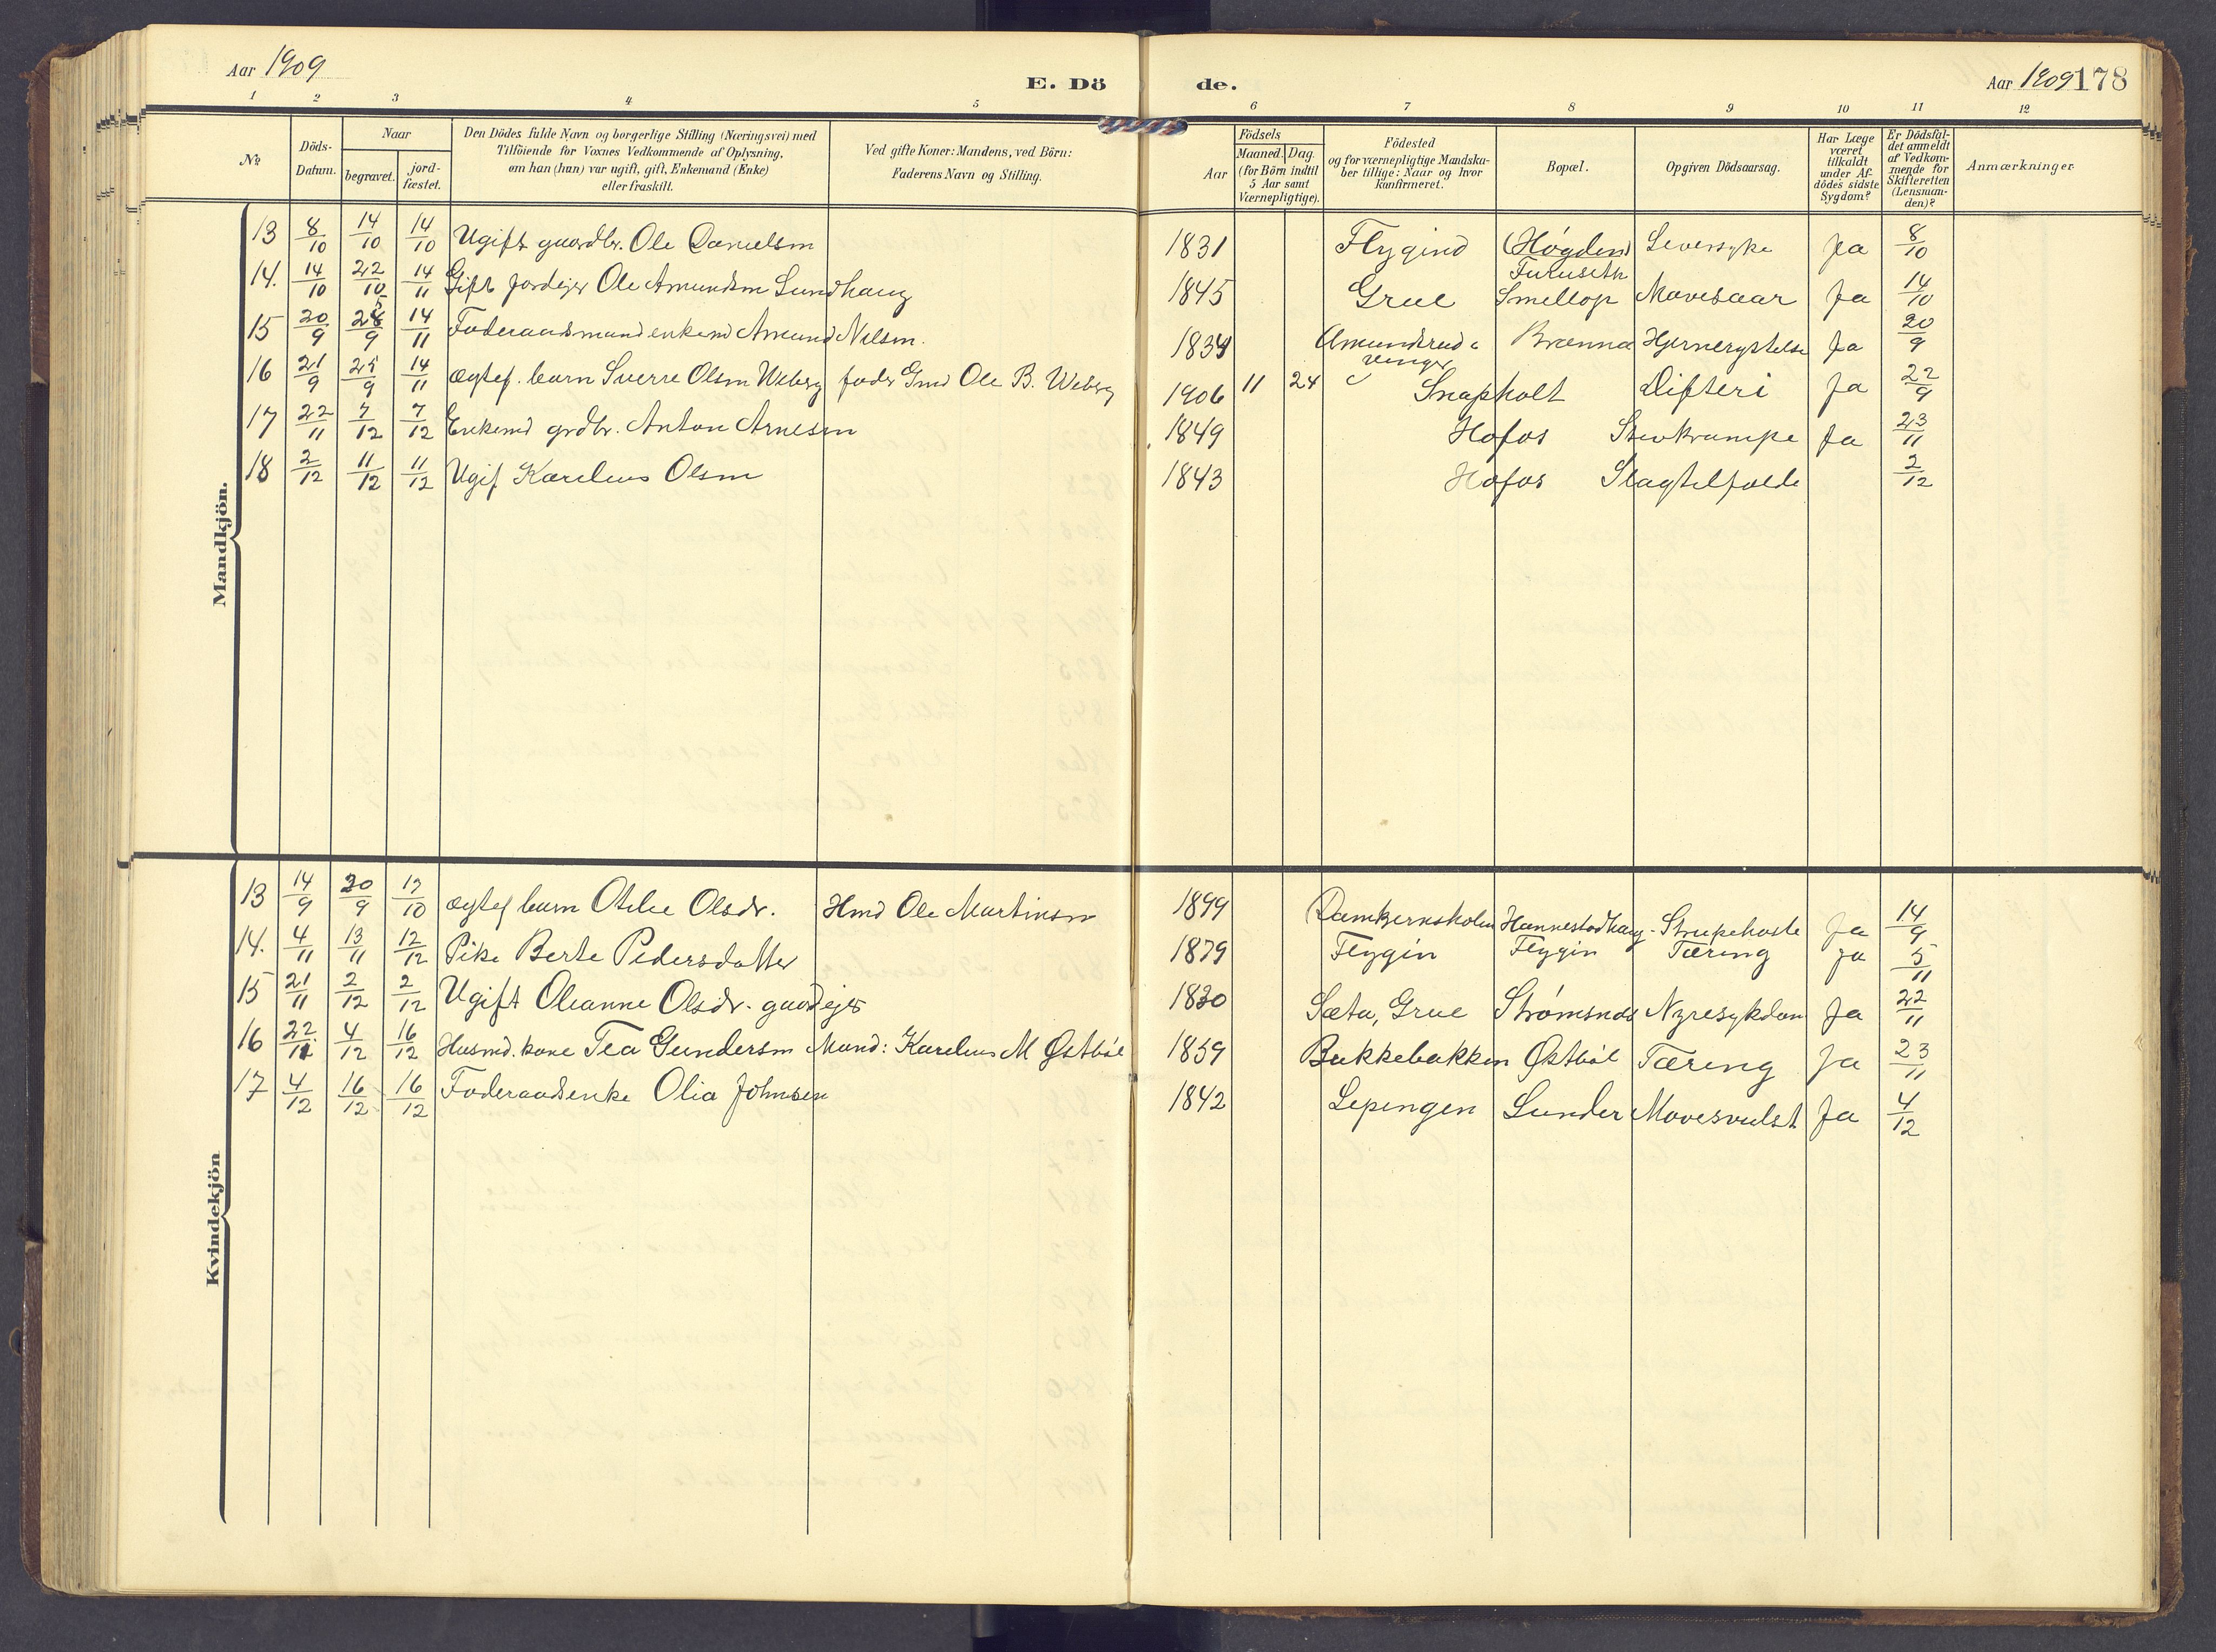 Aar 1909
E. Dö de.
Aar 1909 178
1 2 3 4 5 6 7 8 9 10 11 12
№
Döds-
Datum.
Naar
begravet.
jord-
fæstet.
Den Dödes fulde Navn og borgerlige Stilling (Næringsvei) med
Tilföiende for Voxnes Vedkommende af Oplysning,
om han (hun) var ugift, gift, Enkemand (Enke)
eller fraskilt.
Ved gifte Koner: Mandens, ved Börn:
Faderens Navn og Stilling.
Aar
Födsels
Maaned. Dag.
(for Börn indtil
5 Aar samt
Værnepligtige).
Födested
og for værnepligtige Mandska-
ber tillige: Naar og hvor
konfirmeret.
Bopæl.
Opgiven Dödsaarsag.
Har Læge
været
tilkaldt
under Af-
dödes sidste
Sygdom?
Er Dödsfal-
det anmeldt
af Vedkom-
mende for
Skifteretten
(Lensman-
den)?
Anmærkninger.
Mandkjön.
13 8/10 14/10 14/10 Ugift gaardbr. Ole Danielsen 1831 Flygind (Høgden) Leversyke Ja 8/10
Furuseth
14. 14/10 22/10 14/11 Gift jordejer Ole Amundsen Sundhaug 1845 Grue Smellop Mavesaar Ja 14/10
15 20/9 25/9 14/11 Foderaadsmand enkemd Amund Nilsen. 1834 Amundsrud Brænna Hjernerystelse Ja 20/9
Vinger
16 21/9 25/9 14/11 Ægtef. barn Sverre Olsen Wiberg fader Gmd Ole B. Wiberg 1906 11 24 Snapholt Difteri Ja 22/9
17 22/11 7/12 7/12 Enkemd grdbr. Anton Arnesen 1849 Hofos Stivkrampe Ja 23/11
18 2/12 11/12 11/12 Ugif Karelius Olsen 1843 Hofos Slagtilfælde 2/12
Kvindekjön
13 14/9 20/9 12/10 Ægtef barn Otilie Olsdr. Hmd Ole Martinsen 1899 Damtjernsholm Hannestadhaug Strupehoste Ja 14/9
14. 4/11 13/11 12/12 Pike Berte Pedersdatter 1879 Flygin Flygin Tæring Ja 5/11
15 21/11 2/12 2/12 Ugift Oleanne Olsdr. gaardejer 1830 Sæta, Grue Strømsnes Nyresykdom Ja 22/11
16 22/11 4/12 16/12 Husmd. kone Tea Gundersen Mand: Karelius M Østbøl 1859 Bukkebakken Østbøl Tæring Ja 23/11
17 4/12 16/12 16/12 Foderaadsenke Olia Johnsen 1842 Lepingen Sunder Mavesvulst Ja 4/12